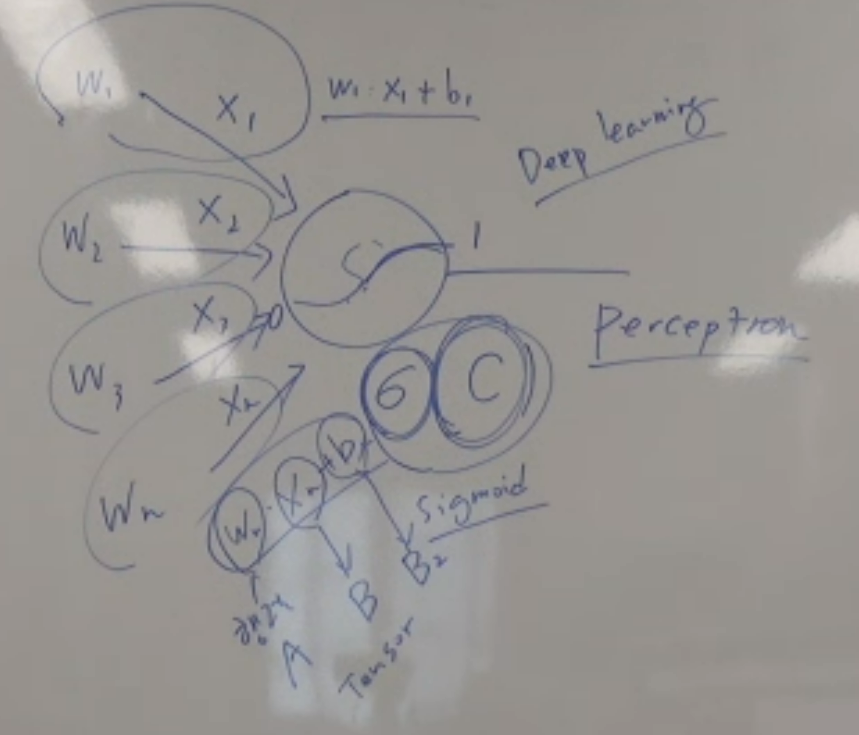 W₁ X₁ w₁·x₁+b₁
Deep learning
W₂ X₂ 1
0
W₃ X₃
Perceptron
Xn
6 C
Wn
Wn · Xn + b
Sigmoid
B₂
B
A
Tensor